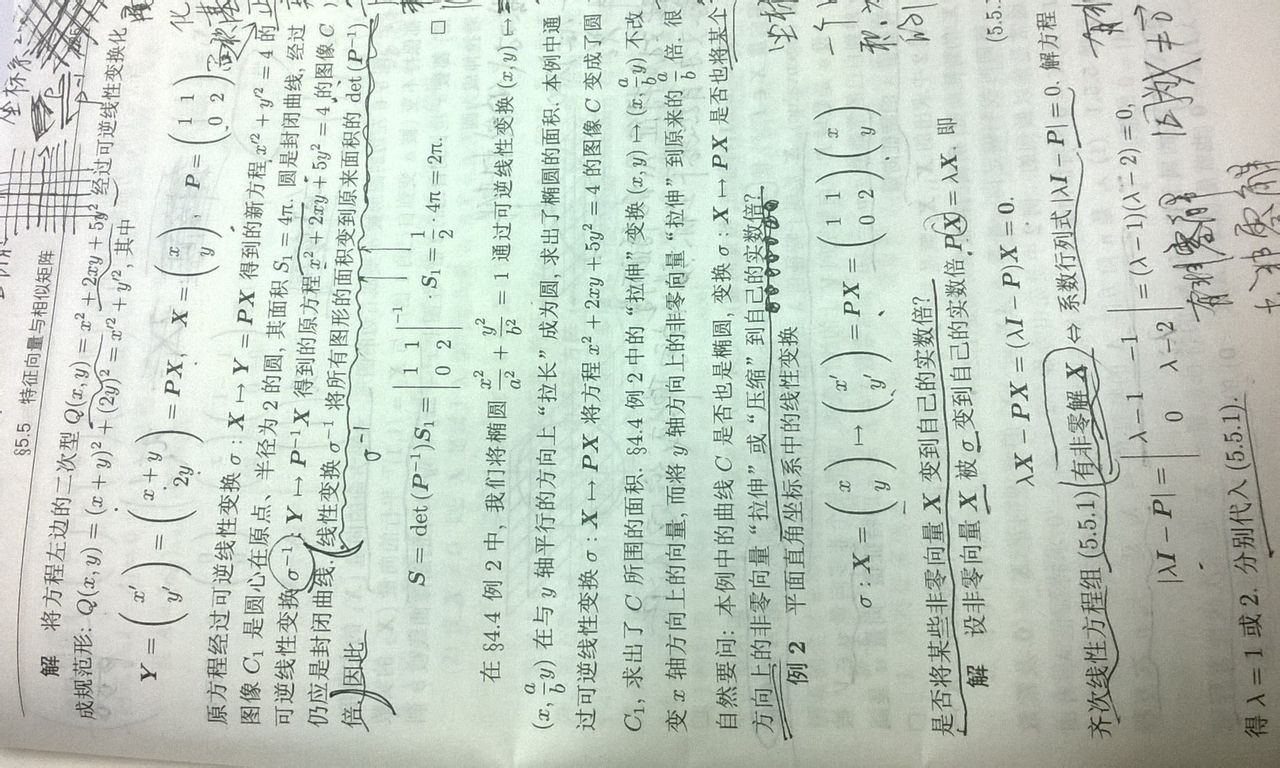 §5.5 特征向量与相似矩阵
解 将方程左边的二次型 Q(x, y) = x² + 2xy + 5y² 经过可逆线性变换化
成规范形: Q(x, y) = (x + y)² + (2y)² = x'² + y'², 其中
Y = (x' y') = (x + y 2y) = PX, X = (x y), P = (1 1 0 2)
原方程经过可逆线性变换 σ : X ↦ Y = PX 得到的新方程 x² + y² = 4 的
图像 C₁ 是圆心在原点、半径为 2 的圆, 其面积 S₁ = 4π. 圆是封闭曲线, 经过
可逆线性变换 σ⁻¹: Y ↦ P⁻¹X 得到的原方程 x² + 2xy + 5y² = 4 的图像 C
仍应是封闭曲线, 线性变换 σ⁻¹ 将所有图形的面积变到原来面积的 det (P⁻¹)
倍, 因此
σ⁻¹
S = det (P⁻¹)S₁ = |1 1 0 2|⁻¹ · S₁ = 1/2 · 4π = 2π. □
在 §4.4 例 2 中, 我们将椭圆 x²/a² + y²/b² = 1 通过可逆线性变换 (x, y) ↦
(x, a/b y) 在与 y 轴平行的方向上 “拉长” 成为圆, 求出了椭圆的面积. 本例中通
过可逆线性变换 σ : X ↦ PX 将方程 x² + 2xy + 5y² = 4 的图像 C 变成了圆
C₁, 求出了 C 所围的面积. §4.4 例 2 中的 “拉伸” 变换 (x, y) ↦ (x, a/b y) 不改
变 x 轴方向上的向量, 而将 y 轴方向上的非零向量 “拉伸” 到原来的 a/b 倍. 很
自然要问: 本例中的曲线 C 是否也是椭圆, 变换 σ : X ↦ PX 是否也将某个
方向上的非零向量 “拉伸” 或 “压缩” 到自己的实数倍?
例 2 平面直角坐标系中的线性变换
σ : X = (x y) ↦ (x' y') = PX = (1 1 0 2) (x y)
是否将某些非零向量 X 变到自己的实数倍?
解 设非零向量 X 被 σ 变到自己的实数倍 PX = λX. 即
λX − PX = (λI − P)X = 0. (5.5.
齐次线性方程组 (5.5.1) 有非零解 X ⇔ 系数行列式 |λI − P| = 0. 解方程
|λI − P| = |λ − 1 −1 0 λ − 2| = (λ − 1)(λ − 2) = 0,
有非零解
得 λ = 1 或 2. 分别代入 (5.5.1).